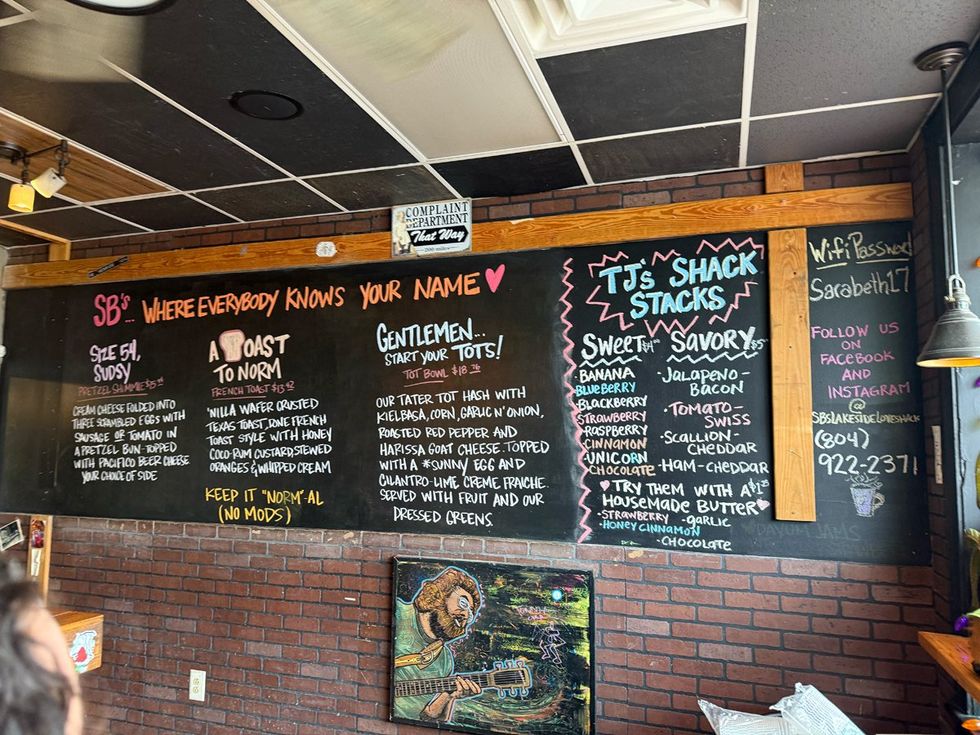 COMPLAINT
DEPARTMENT
That Way
200 miles
SB's... WHERE EVERYBODY KNOWS YOUR NAME
SIZE 54,
SUDSY
PRETZEL SHIMMIE $15
CREAM CHEESE FOLDED INTO
THREE SCRAMBLED EGGS WITH
SAUSAGE OR TOMATO IN
A PRETZEL BUN-TOPPED
WITH PACIFICO BEER CHEESE
YOUR CHOICE OF SIDE
A TOAST
TO NORM
FRENCH TOAST $13
'NILLA WAFER CRUSTED
TEXAS TOAST, DONE FRENCH
TOAST STYLE WITH HONEY
COCO-RUM CUSTARD, STEWED
ORANGES & WHIPPED CREAM
KEEP IT "NORM"-AL
(NO MODS)
GENTLEMEN...
START YOUR TOTS!
TOT BOWL $18
OUR TATER TOT HASH WITH
KIELBASA, CORN, GARLIC N' ONION,
ROASTED RED PEPPER AND
HARISSA GOAT CHEESE. TOPPED
WITH A *SUNNY EGG AND
CILANTRO-LIME CREME FRAICHE.
SERVED WITH FRUIT AND OUR
DRESSED GREENS.
TJ's SHACK
STACKS
SWEET
BANANA
BLUEBERRY
BLACKBERRY
STRAWBERRY
RASPBERRY
CINNAMON
UNICORN
CHOCOLATE
SAVORY $5
·JALAPENO-
BACON
·TOMATO-
SWISS
·SCALLION-
CHEDDAR
·HAM-CHEDDAR
TRY THEM WITH A
HOUSEMADE BUTTER
·STRAWBERRY ·GARLIC
·HONEY CINNAMON
·CHOCOLATE
Wifi Password
Sarabeth17
FOLLOW US
ON
FACEBOOK
AND
INSTAGRAM
@
SBSLAKESIDELOVESHACK
(804)
922-2371